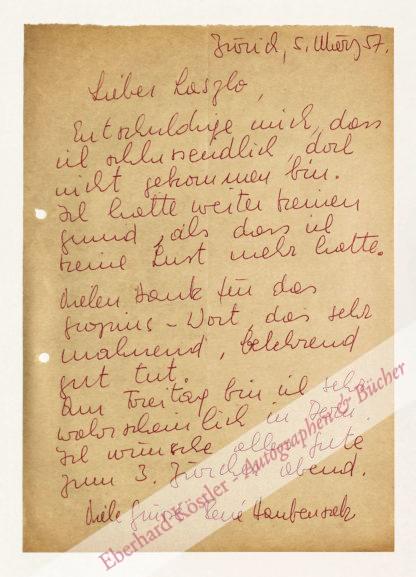 Zürich, 5. März 57.
Lieber Laszlo,
Entschuldige mich, dass
ich schlussendlich doch
nicht gekommen bin.
Ich hatte weiter keinen
Grund, als dass ich
keine Lust mehr hatte.
Vielen Dank für das
Gropius-Wort, das sehr
mahnend, belehrend
gut tut.
Am Freitag bin ich sehr
wahrscheinlich in
Ich wünsche alles Gute
zum 3. Zürcher abend.
Viele Grüsse René Haubensak
Eberhard Köstler - Autographen & Bücher